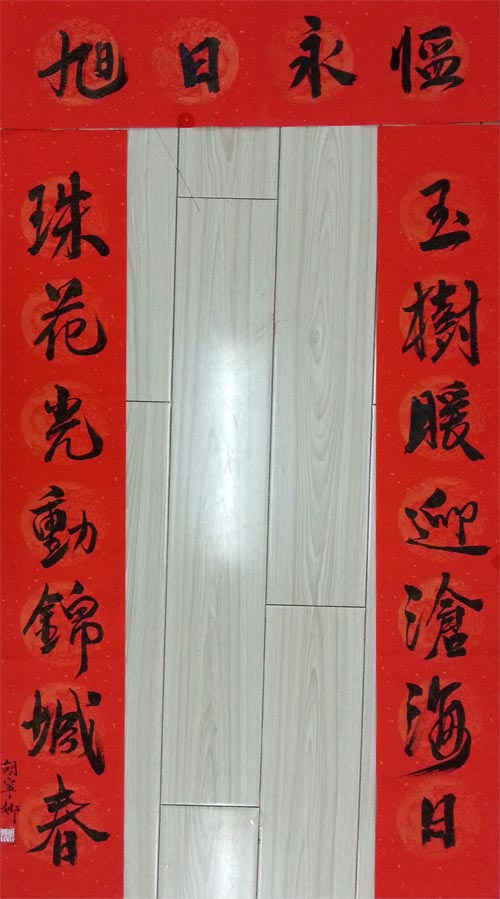 旭日永恒
玉樹暖迎滄海日
珠花光動錦城春